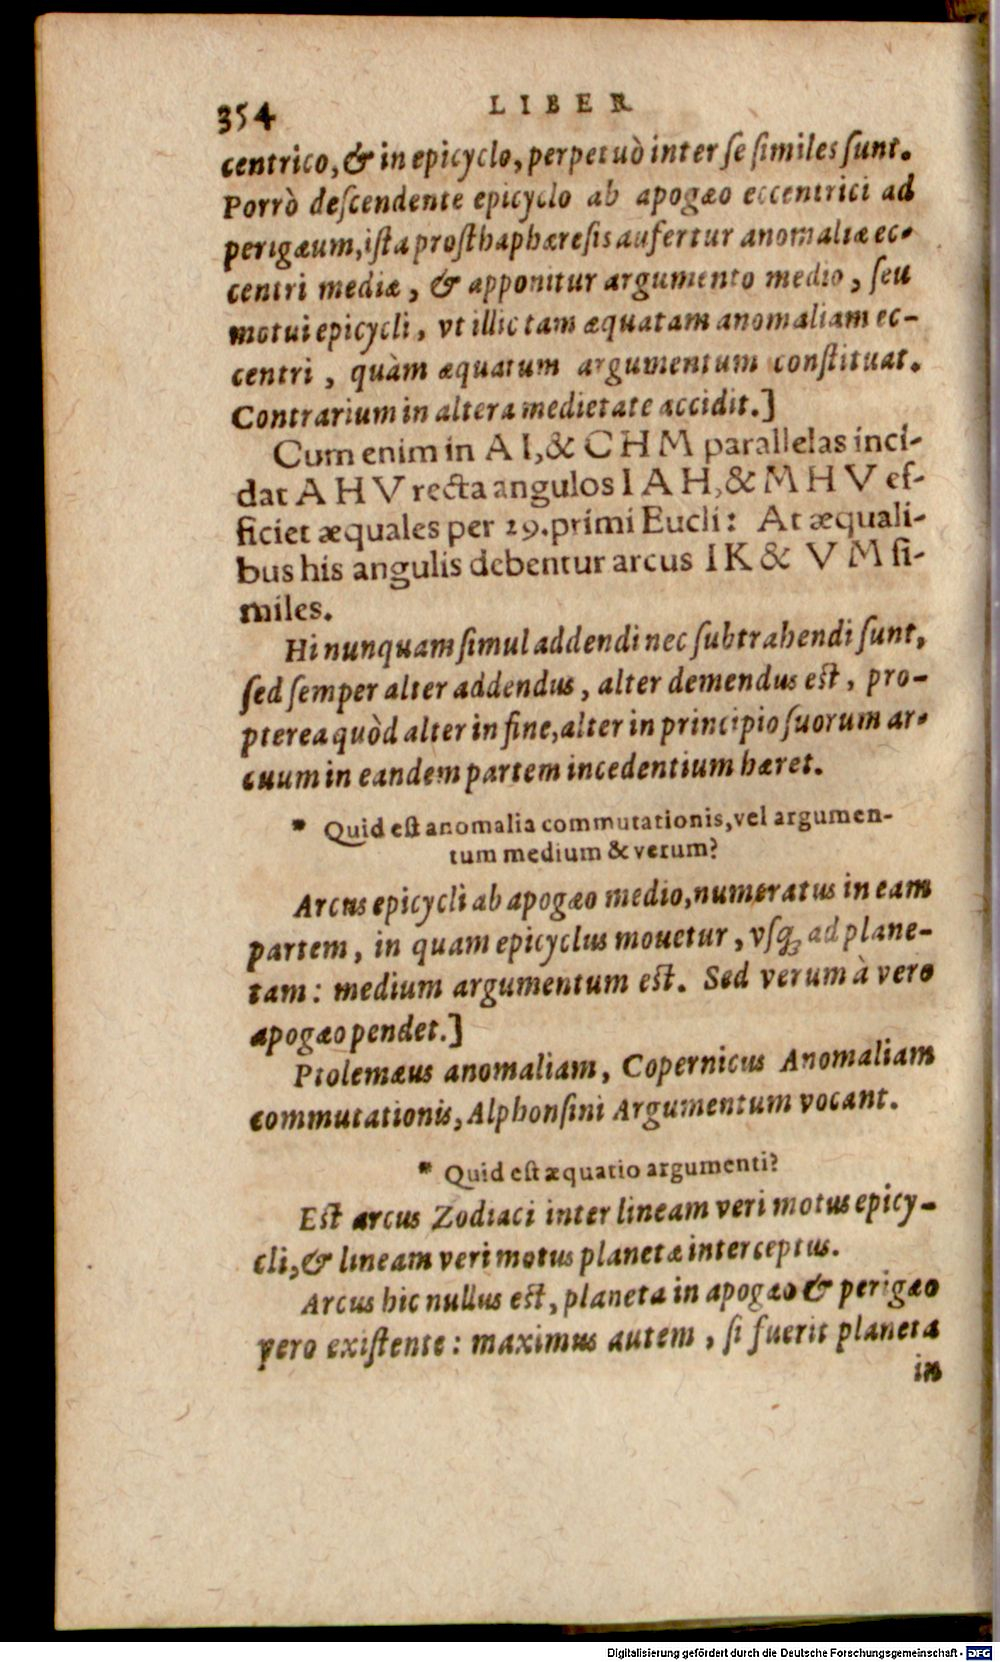 354 LIBER
centrico, & in epicyclo, perpetuò inter se similes sunt.
Porrò descendente epicyclo ab apogæo eccentrici ad
perigæum, ista prosthaphæresis aufertur anomaliæ ec-
centri mediæ, & apponitur argumento medio, seu
motui epicycli, vt illic tam æquatam anomaliam ec-
centri, quàm æquatum argumentum constituat.
Contrarium in altera medietate accidit.]
Cum enim in A I, & C H M parallelas inci-
dat A H V recta angulos I A H, & M H V ef-
ficiet æquales per 29. primi Eucli: At æquali-
bus his angulis debentur arcus I K & V M si-
miles.
Hi nunquam simul addendi nec subtrahendi sunt,
sed semper alter addendus, alter demendus est, pro-
pterea quòd alter in fine, alter in principio suorum ar-
cuum in eandem partem incedentium hæret.
* Quid est anomalia commutationis, vel argumen-
tum medium & verum?
Arcus epicycli ab apogæo medio, numeratus in eam
partem, in quam epicyclus mouetur, vsq; ad plane-
tam: medium argumentum est. Sed verum à vero
apogæo pendet.]
Ptolemæus anomaliam, Copernicus Anomaliam
commutationis, Alphonsini Argumentum vocant.
* Quid est æquatio argumenti?
Est arcus Zodiaci inter lineam veri motus epicy-
cli, & lineam veri motus planetæ interceptus.
Arcus hic nullus est, planeta in apogæo & perigæo
vero existente: maximus autem, si fuerit planeta
in
Digitalisierung gefördert durch die Deutsche Forschungsgemeinschaft - DFG